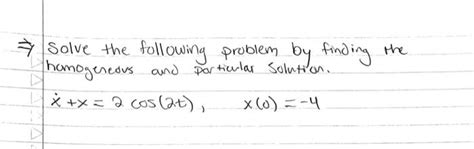 ⇒ Solve the following problem by finding the
homogeneous and particular solution.
ẋ + x = 2 cos(2t), x(0) = -4